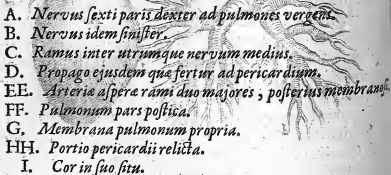 A. Nervus ſexti paris dexter ad pulmones vergens.
B. Nervus idem ſiniſter.
C. Ramus inter utrumque nervum medius.
D. Propago ejusdem quæ fertur ad pericardium.
EE. Arteriæ aſperæ rami duo majores, poſterius membranoſi.
FF. Pulmonum pars poſtica.
G. Membrana pulmonum propria.
HH. Portio pericardii relicta.
I. Cor in ſuo ſitu.